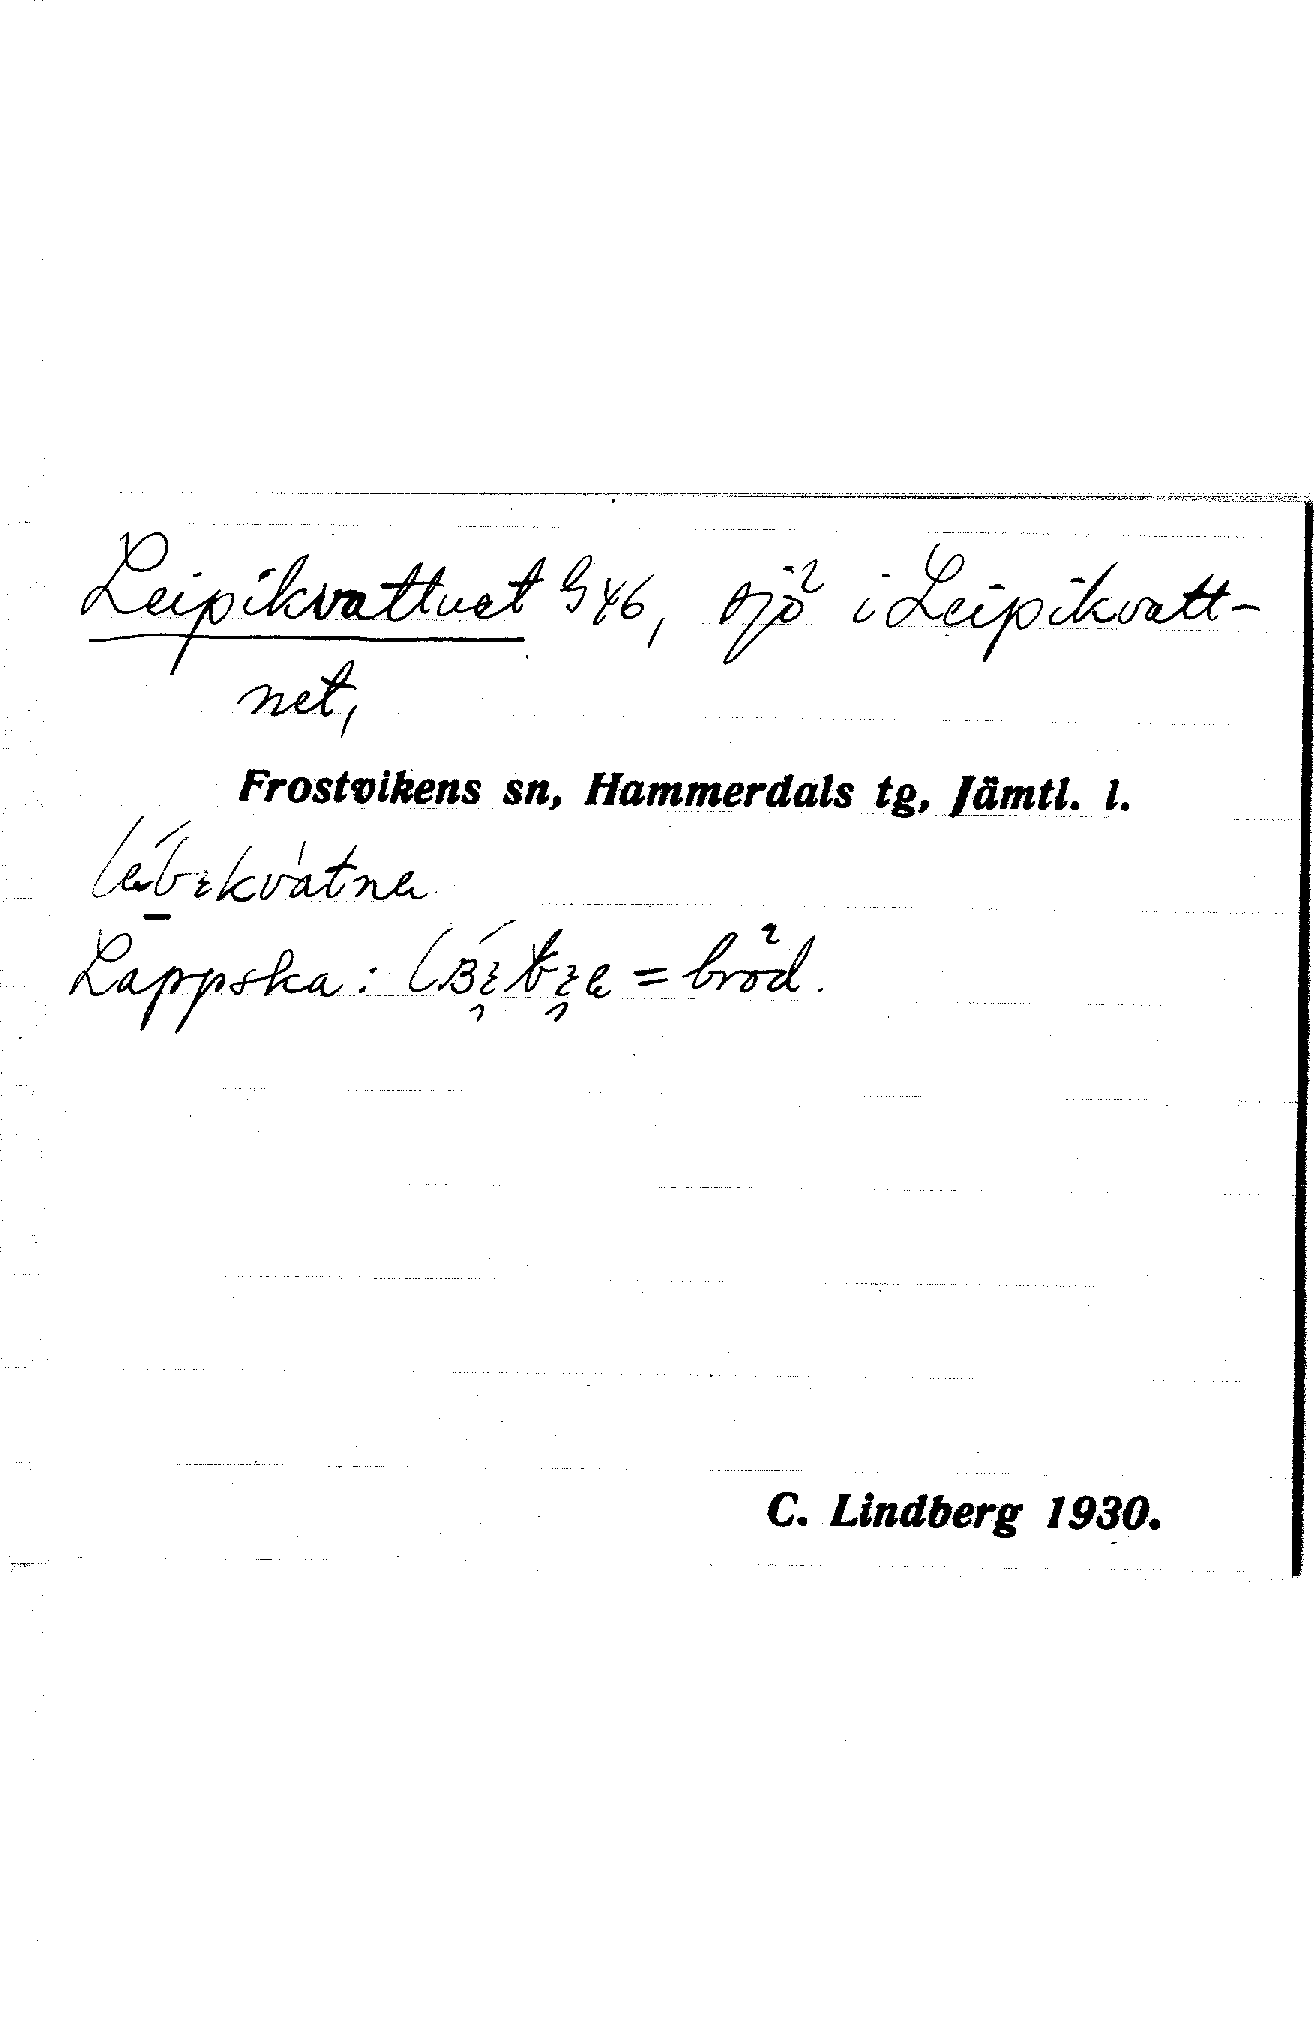 Leipikvattnet G46, sjö i Leipikvatt-
net,
Frostvikens sn, Hammerdals tg, Jämtl. l.
Lappska: = bröd.
C. Lindberg 1930.